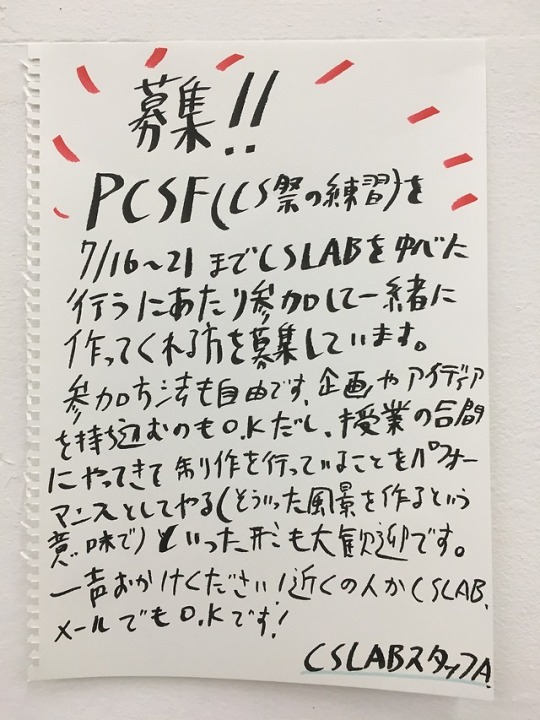 募集!!
PCSF(CS祭の練習)を
7/16~21までCSLABを
行うにあたり参加して一緒に
作ってくれる方を募集しています。
参加方法も自由です。企画やアイディア
を持ち込むのもO.Kだし、授業の合間
にやってきて制作を行っていることをパフォー
マンスとしてやる(そういった風景を作るという
意味で)といった形も大歓迎です。
一声おかけください!近くの人かCSLAB.
メールでもO.Kです!
CSLABスタッフA